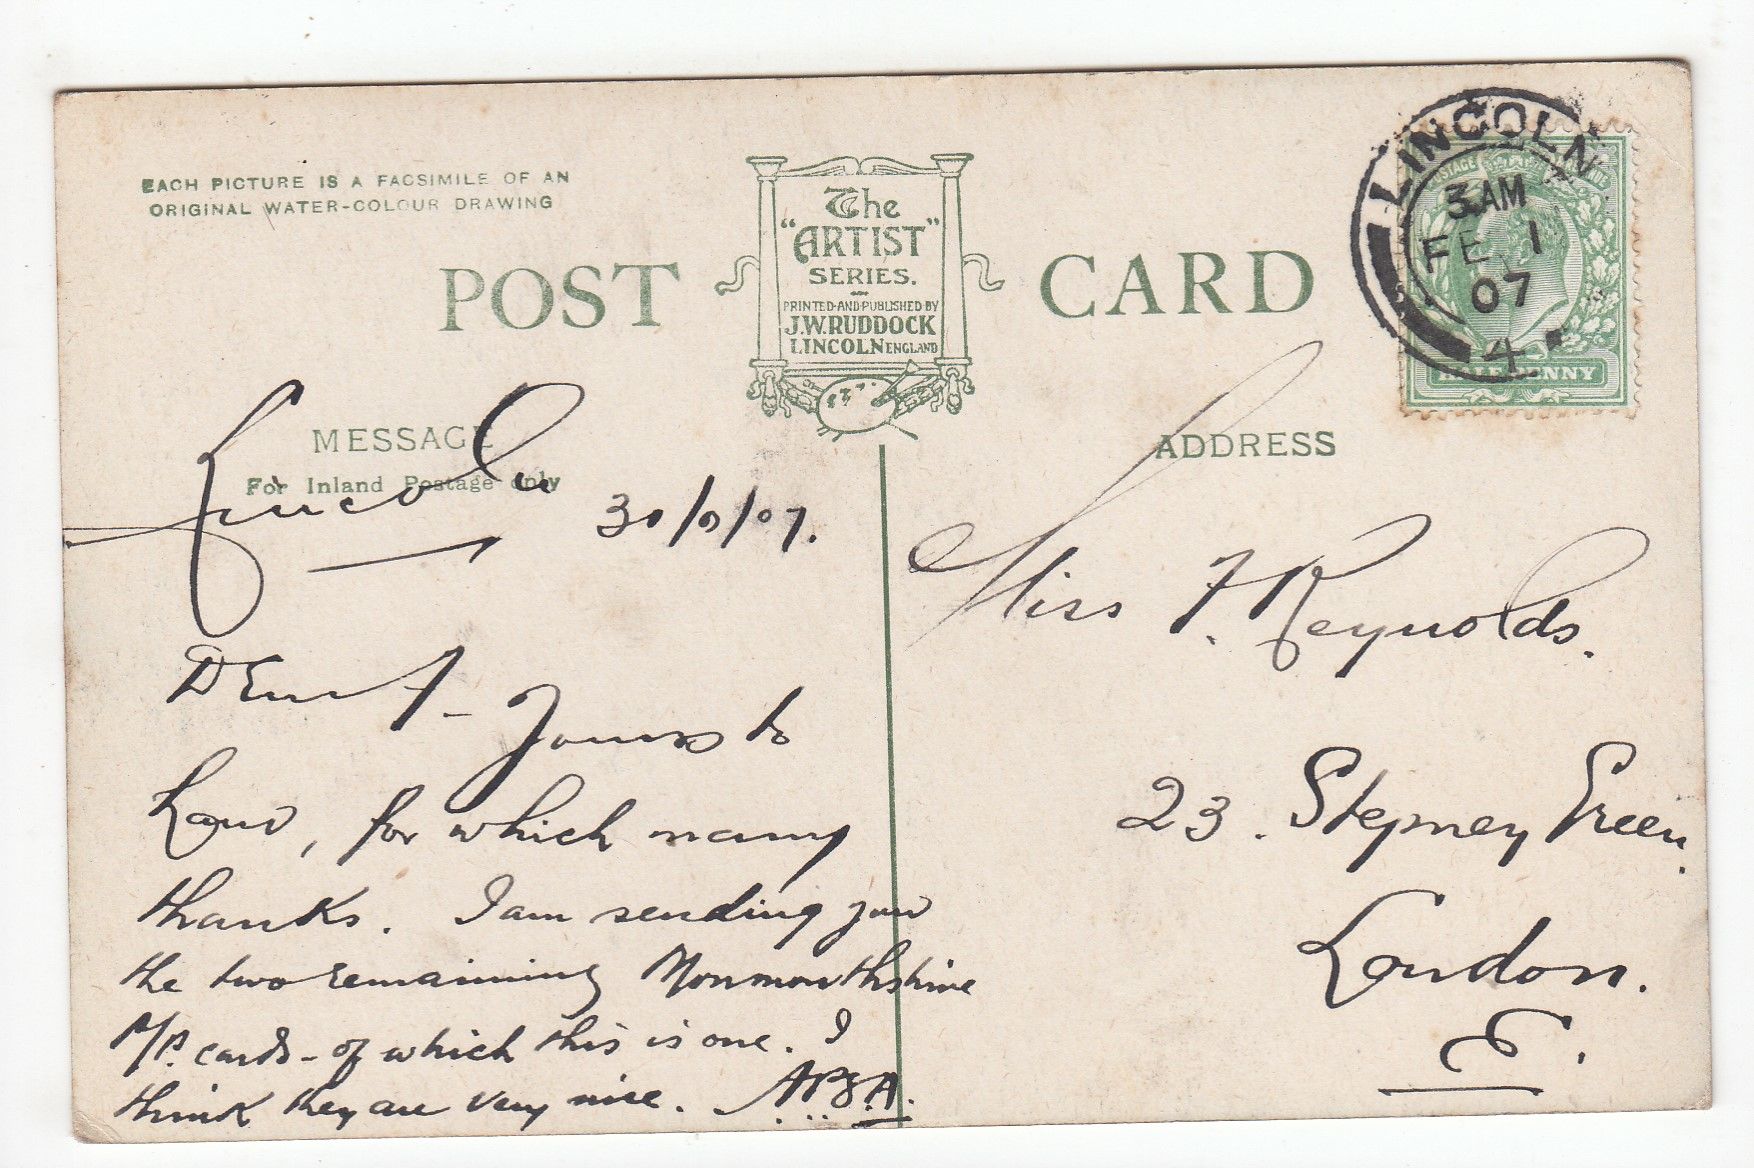 EACH PICTURE IS A FACSIMILE OF AN
ORIGINAL WATER-COLOUR DRAWING
POST CARD
The
"ARTIST"
SERIES.
PRINTED·AND·PUBLISHED BY
J.W.RUDDOCK
LINCOLN ENGLAND
LINCOLN
3.AM
FE 1
07
4
POSTAGE
HALFPENNY
MESSAGE
For Inland Postage only
Lincoln
30/1/07.
Dear F- Yours to
hand, for which many
thanks. I am sending you
the two remaining Monmouthshire
P/P. cards - of which this is one. I
think they are very nice.
ADDRESS
Miss F. Reynolds.
23. Stepney Green.
London.
E.